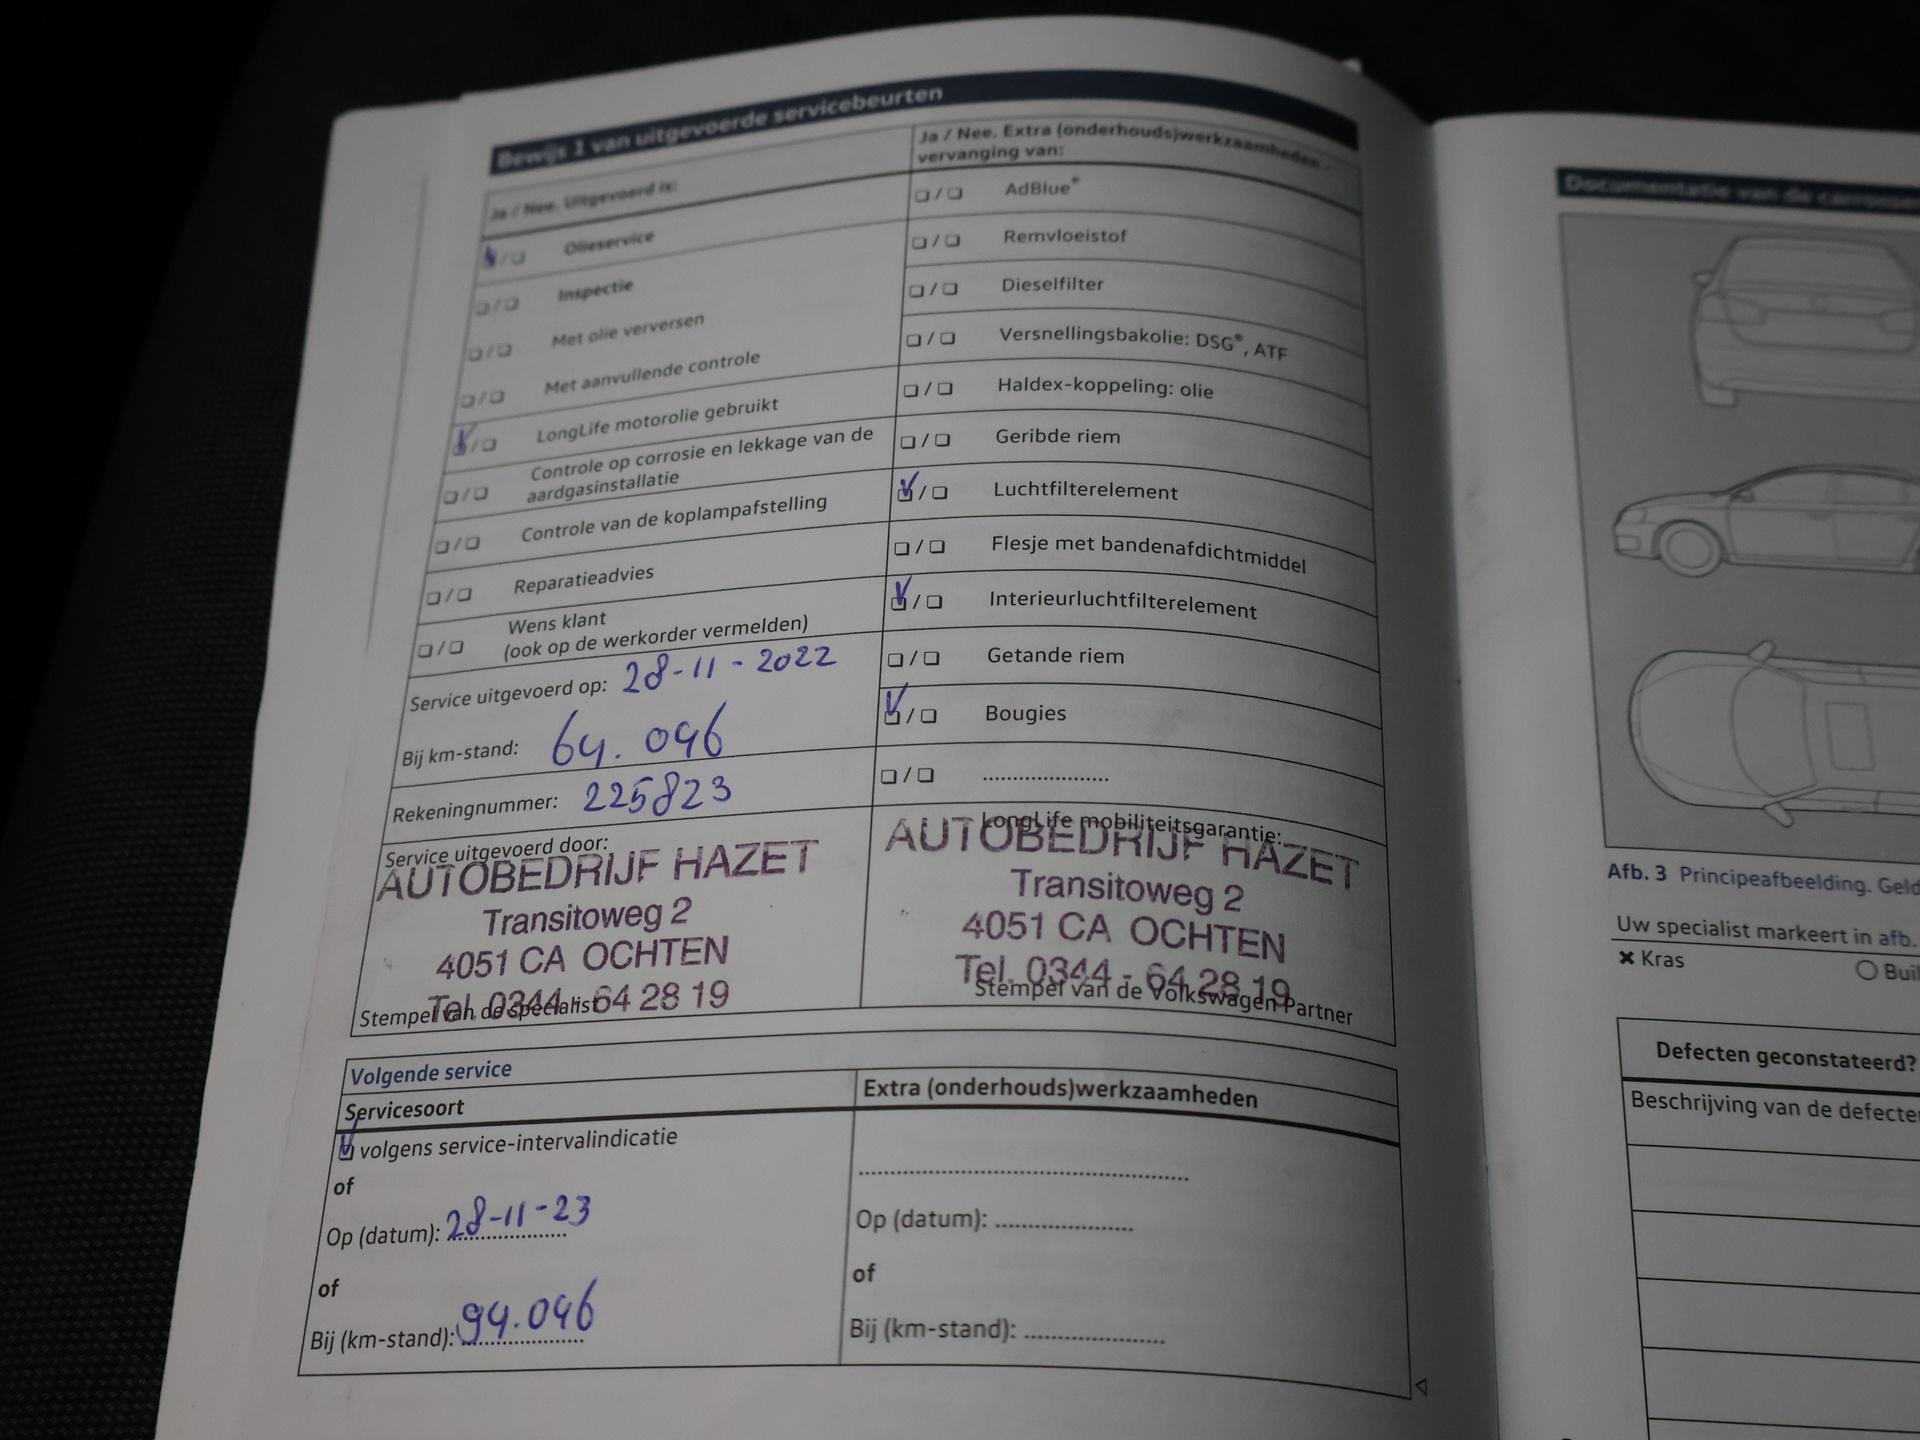 Bewijs 1 van uitgevoerde servicebeurten
Ja / Nee. Uitgevoerd is:
Olieservice
Inspectie
Met olie verversen
Met aanvullende controle
LongLife motorolie gebruikt
Controle op corrosie en lekkage van de
aardgasinstallatie
Controle van de koplampafstelling
Reparatieadvies
Wens klant
(ook op de werkorder vermelden)
Service uitgevoerd op: 28-11-2022
Bij km-stand: 64.046
Rekeningnummer: 225823
Service uitgevoerd door:
AUTOBEDRIJF HAZET
Transitoweg 2
4051 CA OCHTEN
Tel. 0344 - 64 28 19
Stempel van de specialist
Ja / Nee. Extra (onderhouds)werkzaamheden -
vervanging van:
AdBlue®
Remvloeistof
Dieselfilter
Versnellingsbakolie: DSG®, ATF
Haldex-koppeling: olie
Geribde riem
Luchtfilterelement
Flesje met bandenafdichtmiddel
Interieurluchtfilterelement
Getande riem
Bougies
......................
LongLife mobiliteitsgarantie:
AUTOBEDRIJF HAZET
Transitoweg 2
4051 CA OCHTEN
Tel. 0344 - 64 28 19
Stempel van de Volkswagen Partner
Volgende service
Servicesoort
volgens service-intervalindicatie
of
Op (datum): 28-11-23
of
Bij (km-stand): 94.046
Extra (onderhouds)werkzaamheden
Op (datum): ......................
of
Bij (km-stand): ......................
Documentatie van de
Afb. 3 Principeafbeelding.
Uw specialist markeert in afb.
Kras
Defecten geconstateerd?
Beschrijving van de